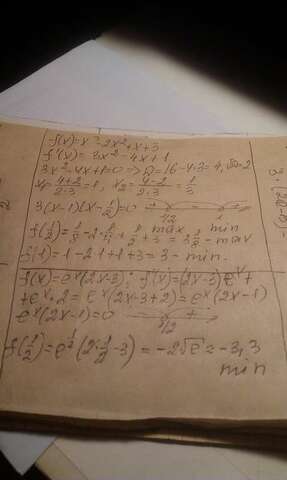 f(x)=x³-2x²+x+3
f'(x)=3x²-4x+1
3x²-4x+1=0 => D=16-4·3=4, √D=2
x₁=(4+2)/(2·3)=1, x₂=(4-2)/(2·3)=1/3
3(x-1)(x-1/3)=0
max min
f(1/3)= - max
f(1)=1-2·1+1+3=3-min.
f(x)=eˣ(2x-3); f'(x)=(2x-3)eˣ+
+eˣ·2=eˣ(2x-3+2)=eˣ(2x-1)
eˣ(2x-1)=0 1/2
f(1/2)=e^(1/2)(2·1/2-3)=-2√e≈-3,3
min